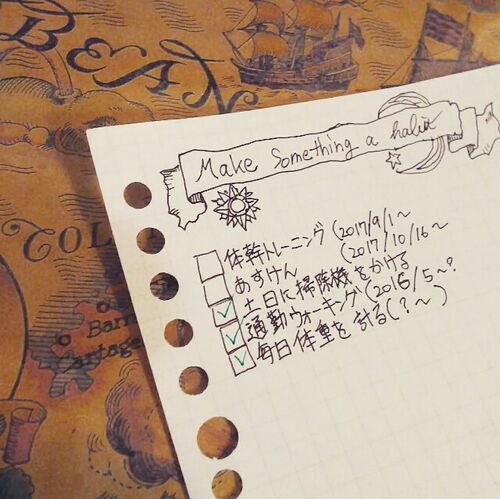 BEAN
COLO
Barr
Cartage
Make Something a habit
体幹トレーニング (2017/9/1～
あすけん (2017/10/16～
土日に掃除機をかける
通勤ウォーキング (2016/5～?
毎日体重を計る (?～)